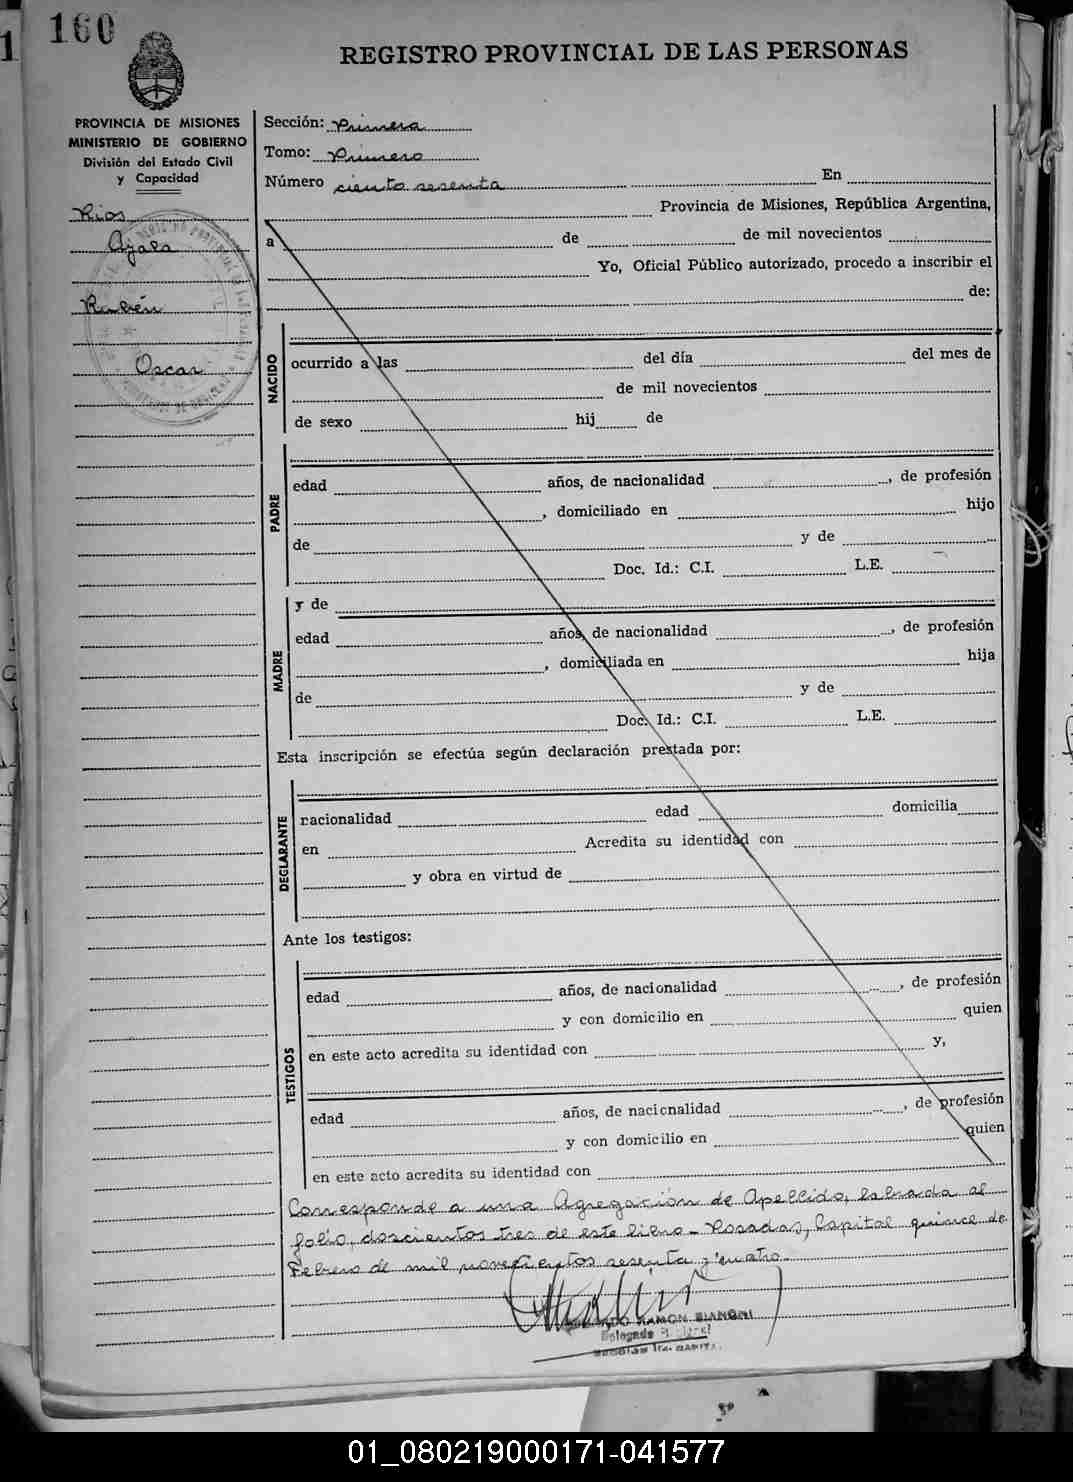 160
REGISTRO PROVINCIAL DE LAS PERSONAS
PROVINCIA DE MISIONES
MINISTERIO DE GOBIERNO
División del Estado Civil
y Capacidad
Rios
Ayala
Rubén
Oscar
Sección: Primera
Tomo: Primero
Número ciento sesenta En
Provincia de Misiones, República Argentina,
a de de mil novecientos
Yo, Oficial Público autorizado, procedo a inscribir el
de:
NACIDO
ocurrido a las del día del mes de
de mil novecientos
de sexo hij de
PADRE
edad años, de nacionalidad , de profesión
, domiciliado en hijo
de y de
Doc. Id.: C.I. L.E.
MADRE
y de
edad años, de nacionalidad , de profesión
, domiciliada en hija
de y de
Doc. Id.: C.I. L.E.
Esta inscripción se efectúa según declaración prestada por:
DECLARANTE
racionalidad edad domicilia
en Acredita su identidad con
y obra en virtud de
Ante los testigos:
TESTIGOS
edad años, de nacionalidad , de profesión
y con domicilio en quien
en este acto acredita su identidad con y,
edad años, de nacionalidad , de profesión
y con domicilio en quien
en este acto acredita su identidad con
Corresponde a una Agregación de Apellido, labrada al
folio, doscientos tres de este libro - Posadas, Capital quince de
Febrero de mil novecientos sesenta y cuatro
RAMON BIANCHI
Delegado
01_080219000171-041577